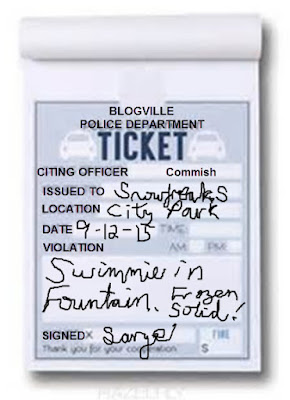 BLOGVILLE
POLICE DEPARTMENT
TICKET
CITING OFFICER Commish
ISSUED TO Snowfreaks
LOCATION City Park
DATE 9-12-15 TIME:
VIOLATION AM: PM:
Swimmie in
Fountain. Frozen
Solid!
SIGNED Sarge
FINE
Thank you for your cooperation S
HAZELFILY